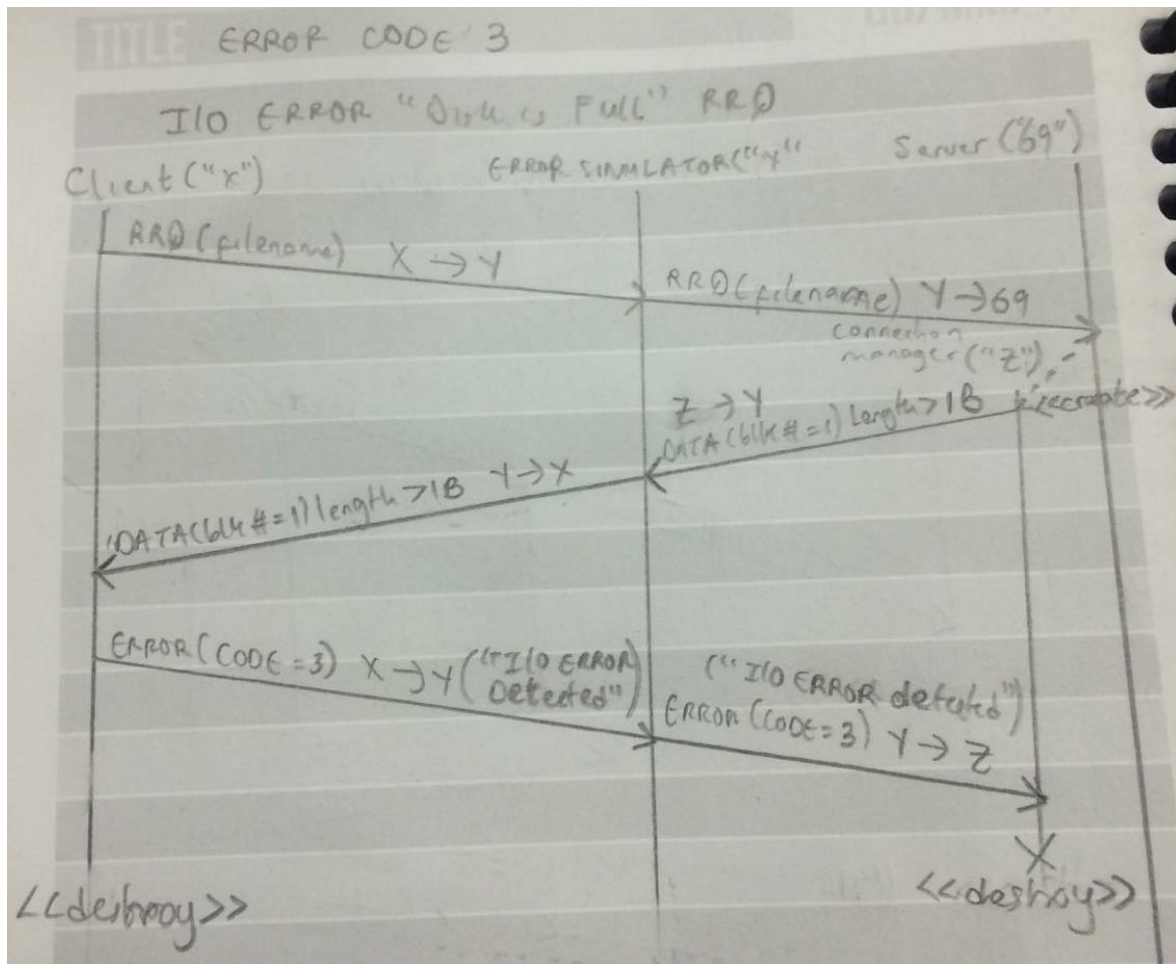 TITLE ERROR CODE 3
I/O ERROR "Disk is Full" RRQ
Client ("x") ERROR SIMULATOR("y" Server ("69")
RRQ (filename) X → Y
RRQ (filename) Y → 69
connection
manager ("Z")
<<create>>
Z → Y
DATA (blk # = 1) Length > 1B
DATA (blk # = 1) length > 1B Y → X
ERROR (CODE = 3) X → Y ("I/O ERROR
Detected")
("I/O ERROR detected")
ERROR (CODE = 3) Y → Z
X
<<destroy>> <<destroy>>